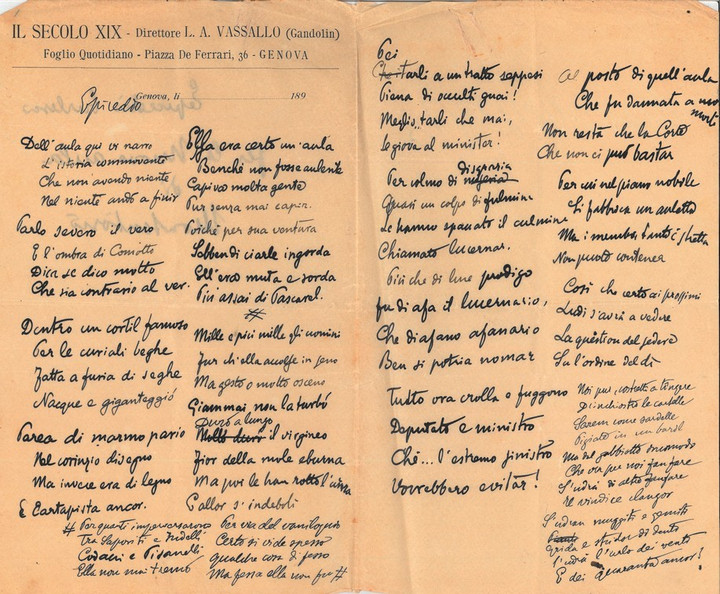 IL SECOLO XIX - Direttore L. A. VASSALLO (Gandolin)
Foglio Quotidiano - Piazza De Ferrari, 36 - GENOVA
Genova, li 189
Epicedio
Dell'aula qui vi narro
L'istoria commovente
Che non avendo niente
Nel niente andò a finir
Parlo severo il vero
E l'ombra di Comotto
Dica se dico motto
Che sia contrario al ver.
Dentro un cortil famoso
Per le curiali beghe
Fatta a furia di seghe
Nacque e giganteggiò
Parea di marmo pario
Nel corinzio disegno
Ma invece era di legno
E Cartapista ancor.
# Per quanti imperversarono
Tra Saporiti e
Codacci e Pisanelli
Ella non mai tremò
Ella era certo un'aula
Benchè non fosse aulente
Capiva molta gente
Pur senza mai capir.
Poichè per sua ventura
Sebben di ciarle ingorda
Ell'era muta e sorda
Più assai di Pascarel.
#
Mille e più mille gli uomini
Fur ch'ella accolse in seno
Ma gesto o motto osceno
Giammai, non la turbò
Durò a lungo
Molto durò il virgineo
Fior della mole eburna
Ma poi le han rotto l'
E allor s'indebolì
Per via del vaniloquio
Certo si vide spesso
Qualche cosa di fesso
Ma fessa ella non fu #
Poi
Che tarli a un tratto seppesi
Piena di occulti guai!
Meglio.. tarli che mai,
le giova al minister!
Per colmo di disgrazia
Quasi un colpo di fulmine
Le hanno spaccato il culmine
Chiamato lucernar.
Più che di luce prodigo
fu di afa il lucernario,
Che di afano afanario
Ben si potria nomar
Tutto ora crolla e fuggono
Deputato e ministro
Chè... l'estremo sinistro
Vorrebbero evitar!
Al posto di quell'aula
Che fu dannata a morte
Non resta che la Corte
Che non ci può bastar
Per cui nel piano nobile
Si fabbrica un auletta
Ma i membri, tanto è stretta
Non puote contener
Così che certo ai prossimi
Ludi s'avrà a vedere
La question del sedere
Su l'ordine del dì
Noi pur, costretti a tenere
D'inchiostro le cartelle
Sarem come sardelle
Pigiate in un baril
Ma dal gabbiotto incomodo
Che ora per noi
S'udrà di altre fanfare
Il vindice clangor
S'udran muggiti e gemiti
Grida e stridor di denti
S'udrà l'urlo dei venti
E dei quaranta ancor!